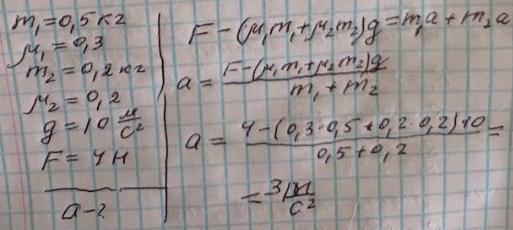 m₁=0,5 кг
μ₁=0,3
m₂=0,2 кг
μ₂=0,2
g=10 м/с²
F=4Н
a-?
F-(μ₁m₁+μ₂m₂)g=m₁a+m₂a
a= F-(μ₁m₁+μ₂m₂)g / m₁+m₂
a= 4-(0,3·0,5+0,2·0,2)10 / 0,5+0,2 =
=3 м/с²